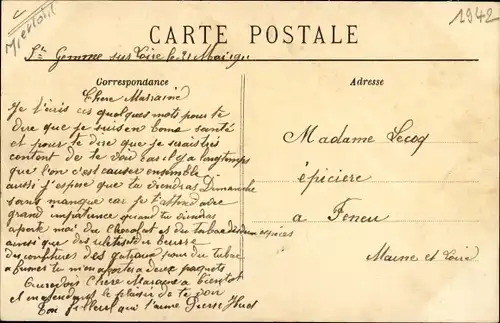 1942
CARTE POSTALE
Ste Gemme sur Loire le 21 Mai
Correspondance
Adresse
Chere Marraine
Je t'écris ces quelques mots pour te
dire que je suis en bone santé
et pour te dire que je serais tres
content de te voir car il y a longtemps
que l'on c'est causer ensemble
aussi j'espere que tu viendras Dimanche
sans manque car je t'attend avec
grand impatience quand tu viendras
aporte moi du Chocolat et du tabac
ainsi que du beurre
des confitures des gateaux pour du tabac
a fumer tu m'en aportera deux paquets
Aurevoir Chere Maraine a bientot
et en attendant le plaisir de te voir
Ton filleul qui t'aime Pierre
Madame Lecoq
épiciere
a Feneu
Maine et Loire